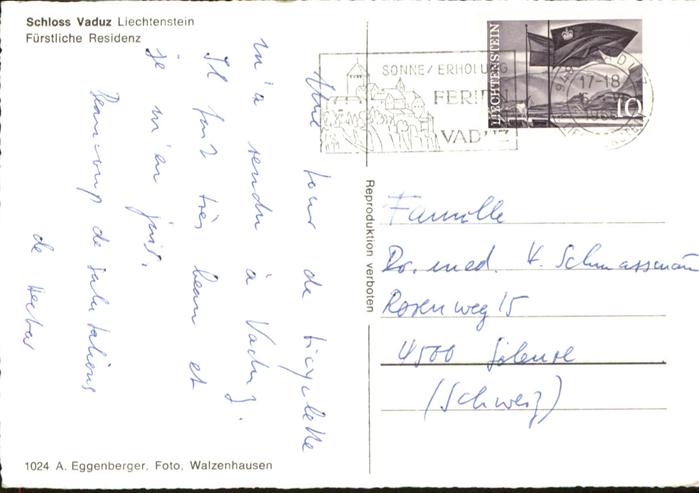 Schloss Vaduz Liechtenstein
Fürstliche Residenz
Une tour de bicyclette
m'a rendu à Vaduz.
Il fait très beau et
je m'en jouis.
Beaucoup de salutations
de
1024 A. Eggenberger, Foto, Walzenhausen
Reproduktion verboten
SONNE/ERHOLUNG
FERIEN
VADUZ
LIECHTENSTEIN
10
17-18
Famille
Dr. med. H. Schmassmann
Rosenweg 15
4500
(Schweiz)